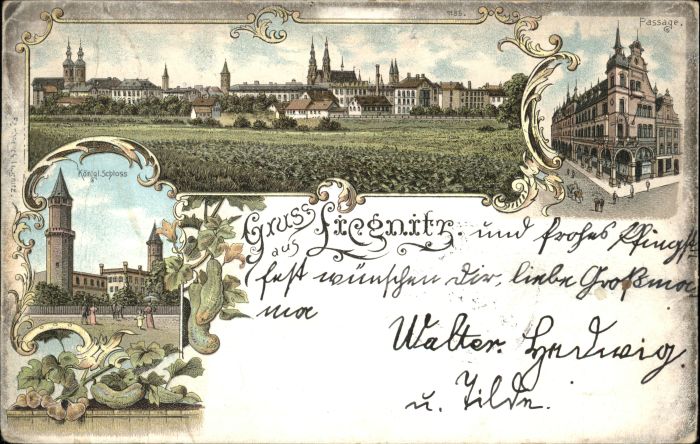 1185.
Passage.
Königl. Schloss
Gruss
aus
Liegnitz. und frohes Pfingst
fest wünschen Dir, liebe Großma
ma
Walter. Hedwig.
u. Tilde.